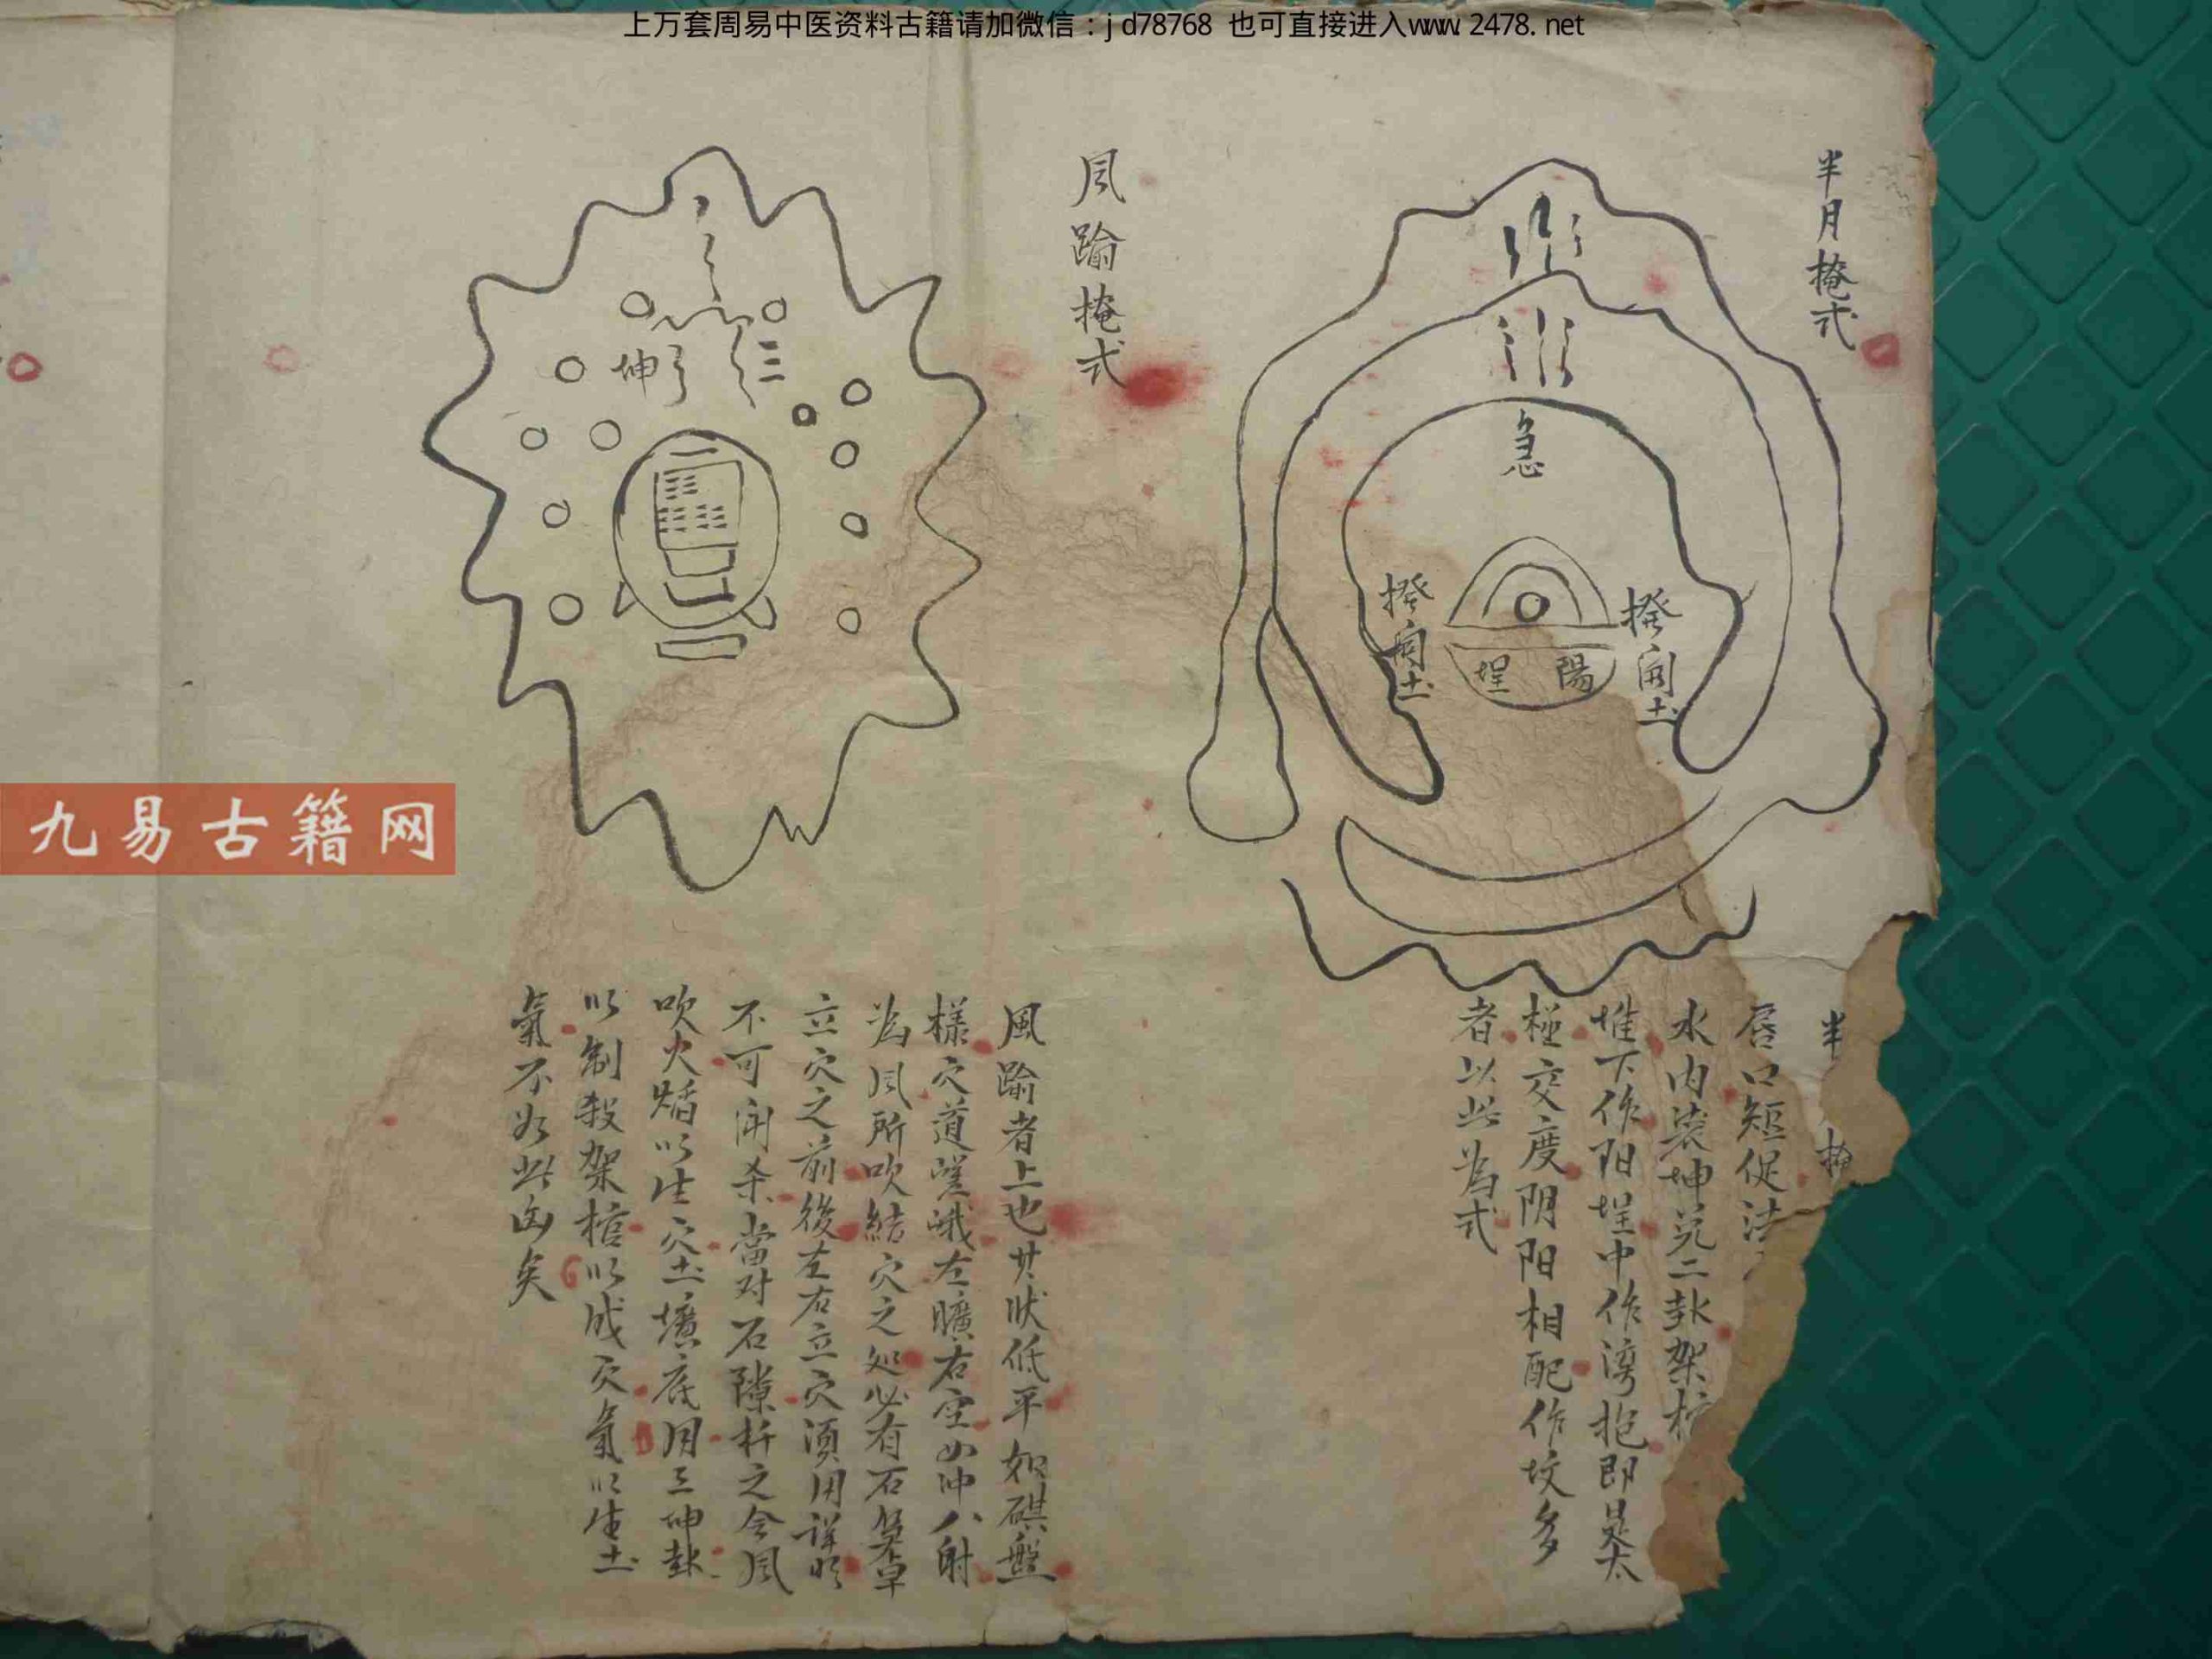 上万套周易中医资料古籍请加微信：jd78768 也可直接进入www.2478.net
半月掩式
急
撥開土
撥開土
陽埕
半
唇口短促法
水内装坤兑二卦架棺
堆下作阳埕中作湾抱即是太
極交度阴阳相配作坟多
者以此為式
風踰掩式
三
坤
風踰者上也其狀低平如碁盤
樣穴道嵯峨左曠右空
為風所吹結穴之処必有石
立穴之前後左右立穴須用詳明
不可用杀當对石隙扦之令風
吹火焰以生穴土壙底用三坤卦
以制殺架棺以成穴氣以生土
氣不如此凶矣
九易古籍网